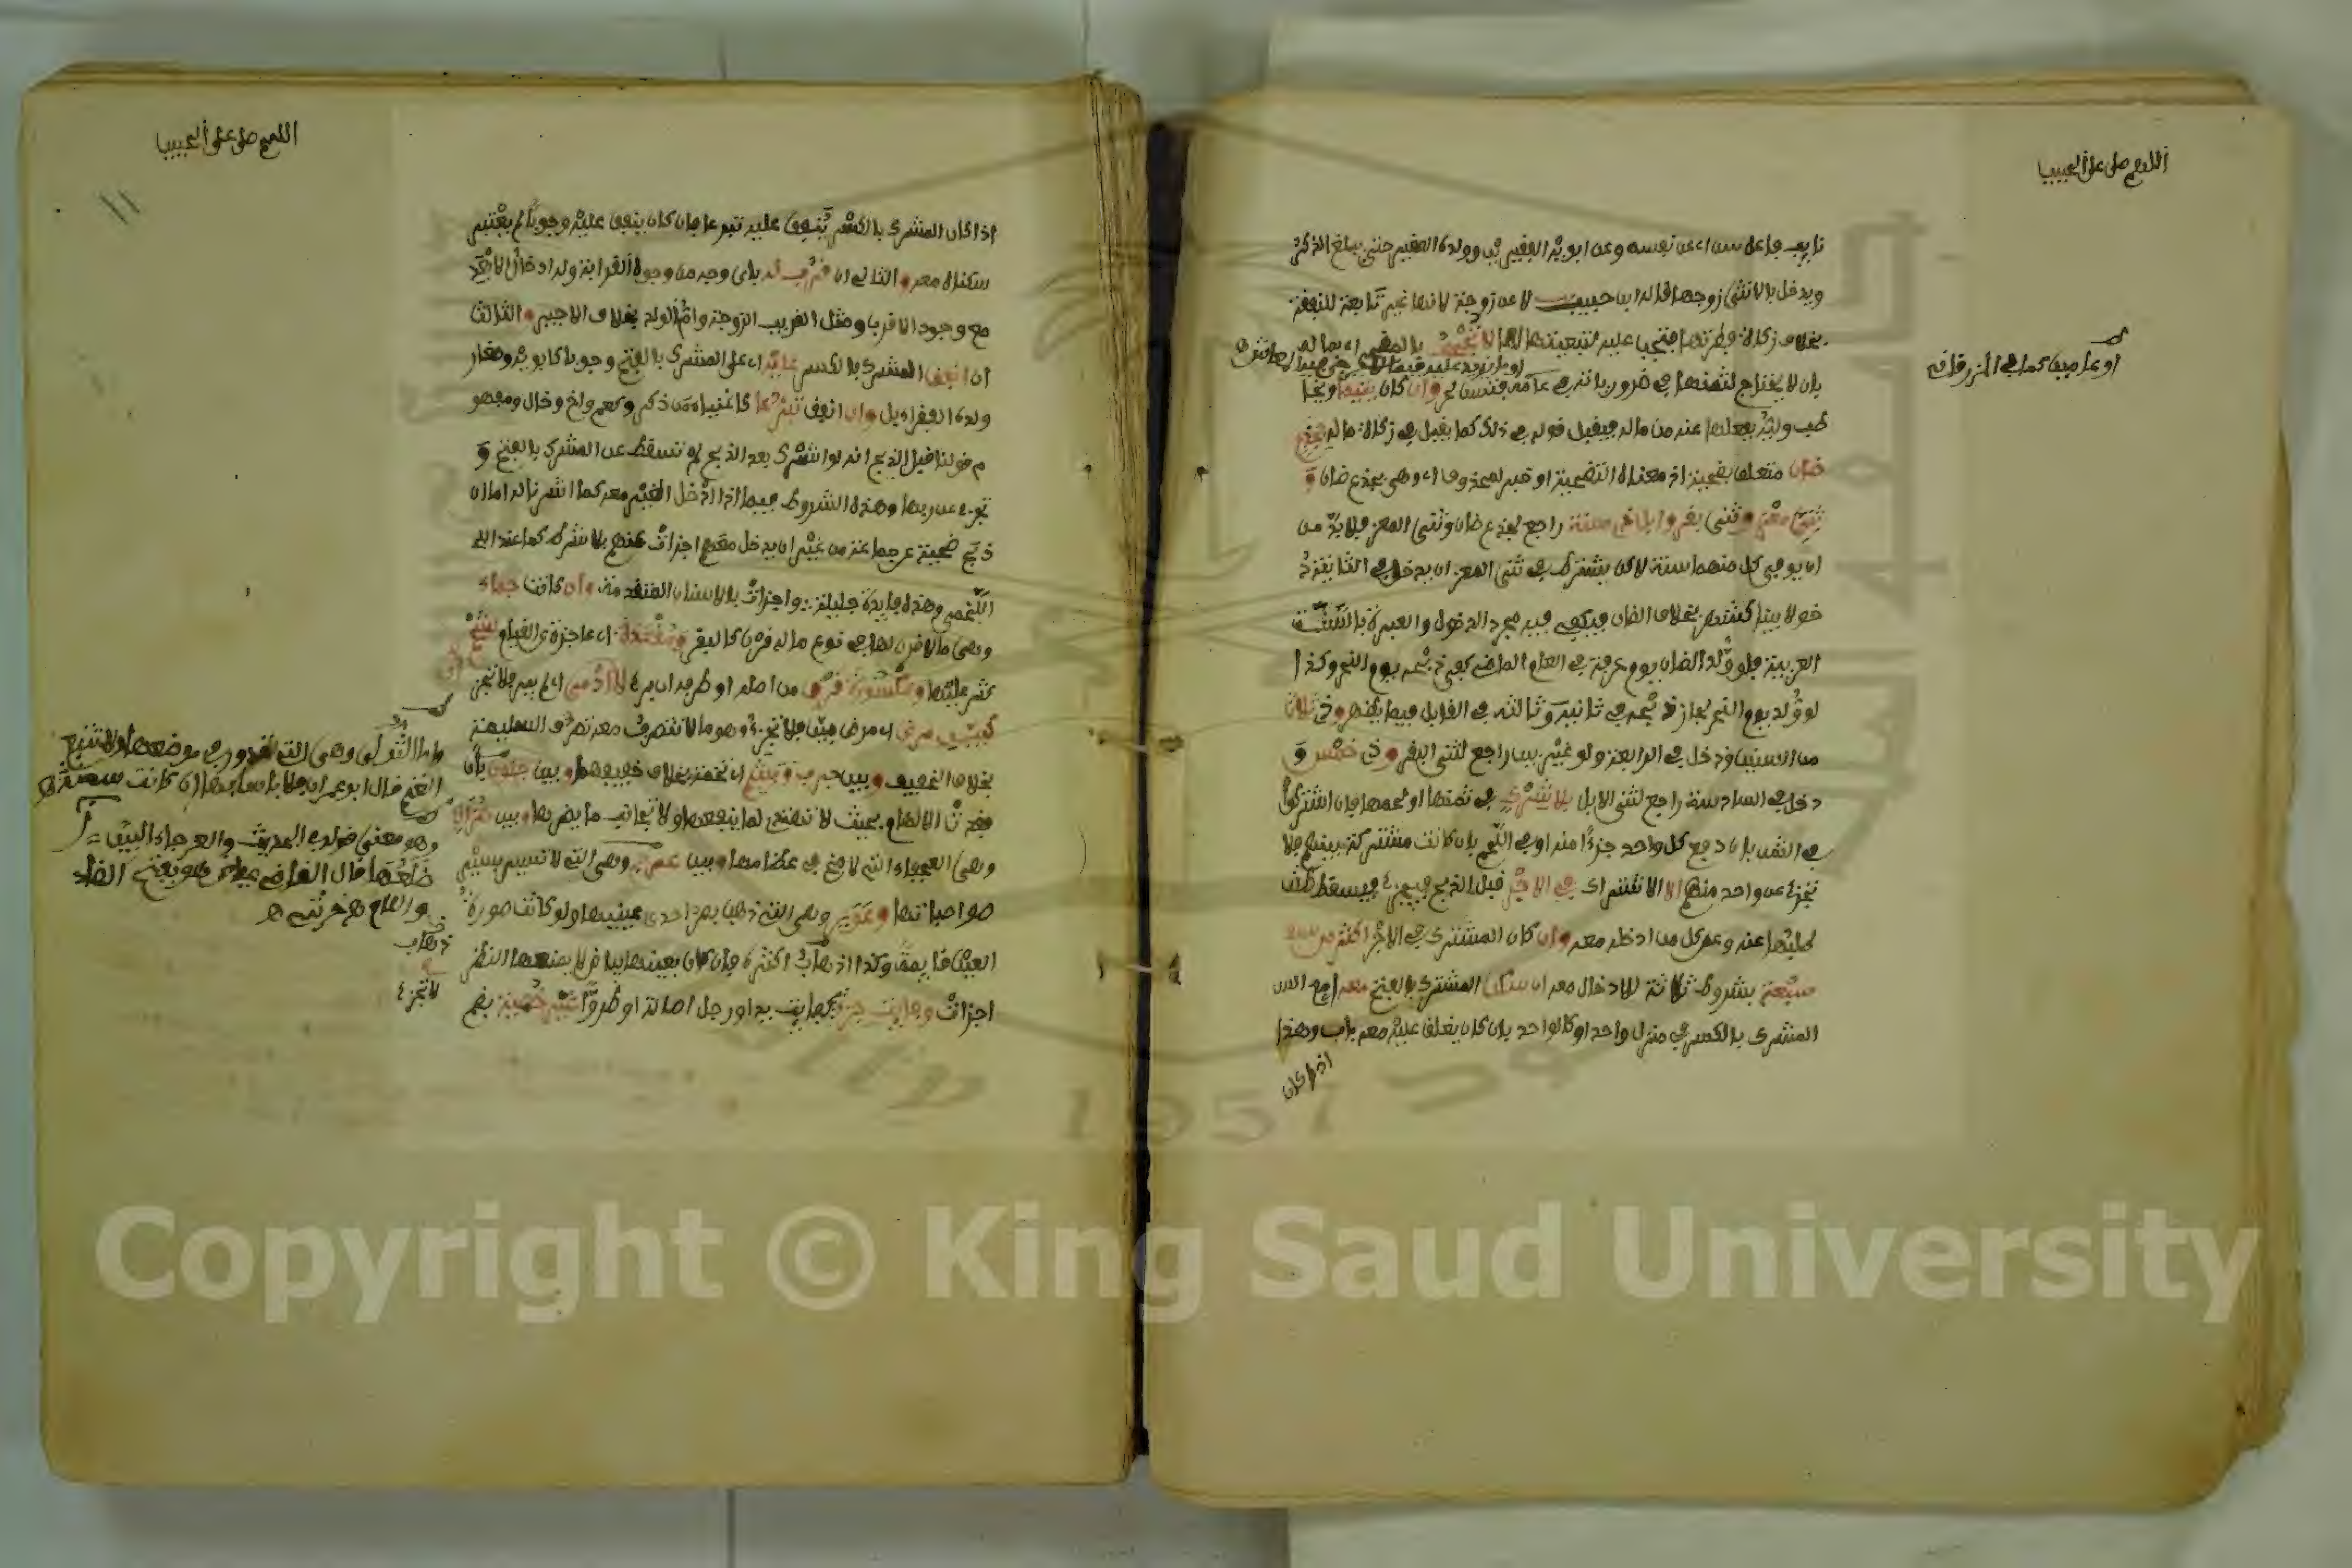 اللهم صل على الحبيب
نايب فاعل سن اى عن نفسه وعن ابويه الفقيرين وولده الفقير حتى يبلغ الذكر
ويدخل بالانثى زوجها قاله ابن حبيب لا عن زوجة لانها غير تابعة للنفقة
بخلاف زكاة فطرتها فتجب عليه لتبعيتها لها لا تجحف بالمضحى اى بماله
او عامين كما في الزرقاني
بان لا يحتاج لثمنها في ضرورياته في عامه فتسن له وان كان يتيما ويخا
طب وليه بفعلها عنه من ماله فيقبل قوله في ذلك كما يقبل في زكاة ماله بجذع
ضان متعلق بضحية اذ معناه التضحية او خبر لمحذوف اى وهي بجذع ضان و
ثني معز وثني بقر وابل ذي سنة راجع لجذع ضان وثني المعز فلا بد من
ان يوفى كل منهما سنة لاكن يشترط في ثني المعز ان يدخل في الثانية د
خولا بينا كشهر بخلاف الضان فيكفي فيه مجرد الدخول والعبرة بالسنة
العربية فلو ولد الضان يوم عرفة في العام الماضي كفى ذبحه يوم النحر وكذا
لو ولد يوم النحر لجاز ذبحه في ثانيه وثالثه في القابل فيما يظهر وذي ثلاث
من السنين ودخل في الرابعة ولو غير بين راجع لثني البقر وذي خمس و
دخل في السادسة راجع لثني الابل بلا شرك في ثمنها او لحمها فان اشتركوا
في الثمن بان دفع كل واحد جزءا منه او في اللحم بان كانت مشتركة بينهم فلا
تجزئ عن واحد منهم الا الاشتراك في الاجر قبل الذبح فيجزئ فيسقط طلب
لحليتها عنه وعن كل من ادخله معه وان كان المشترى في الاجر اكثر من سبعة
سبعة بشروط ثلاثة للادخال معه ان سكن المشرك بالفتح معه اى مع
المشرك بالكسر في منزل واحد او كالواحد بان كان يغلق عليه معه باب وهذا
اذا كان
اللهم صل على الحبيب
١١
اذا كان المشرك بالكسر ينفق عليه تبرعا فان كان ينفق عليه وجوبا لم يعتبر
سكناه معه والثاني ان قرب له باى وجه من وجوه القرابة وله ادخال الابعد
مع وجود الاقرب ومثل القريب الزوجة وام الولد بخلاف الاجير والثالث
ان انفق المشرك بالكسر عليه اى على المشرك بالفتح وجوبا كابويه وصغار
ولده الفقراء بل وان انفق تبرعا كاغنياء من ذكر وكعم واخ وخال ومفهو
م قولنا قبل الذبح انه لو اشرك بعد الذبح لم تسقط عن المشرك بالفتح و
تجزئ عن ربها وهذه الشروط فيما اذا ادخل الغير معه كما اشرنا له اما ان
ذبح ضحية عن جماعة من غير ان يدخل معهم اجزات عنهم بلا شرط كما عند
اللخمي وهذه فايدة جليلة واجزات بالاسنان المتقدمة وان كانت جماء
وهي ما لا قرن لها في نوع ماله قرن كالبقر ومقعدة اى عاجزة عن القيام لشحم
كثر عليها ومكسورة قرن من اصله او طرفه ان برئ لا ادمى اى لم يبر فلا تجزئ
كبين مرض اى مرض بين فلا تجزئ وهو ما لا تتصرف معه تصرف السليمة
بخلاف الخفيف وبين جرب وبشم اى تخمة بخلاف خفيفهما وبين جنون بان
فقدت الالهام بحيث لا تهتدي لما ينفعها ولا تجانب ما يضر بها وبين هزال
وهي العجفاء التي لا مخ في عظامها وبين عرج وهي التي لا تسير بسير
صواحباتها وعور وهي التي ذهب بصر احدى عينيها ولو كانت صورة
العين قايمة وكذا اذهاب اكثره فان كان بعينها بياض لا يمنعها النظر
اجزات وفايت جزء كفايت يد او رجل اصالة او طروا غير خصية بضم
واما الثولى وهي التي تدور في موضعها ولا تتبع
الغنم قال ابو عمران فلا باس بها ان كانت سمينة هـ
وهو معنى قوله في الحديث والعرجاء البين
ضلعها قال القاضي عياض هو بفتح الضاد
واللام هـ خرشي هـ
ذهاب
لا تجزئ